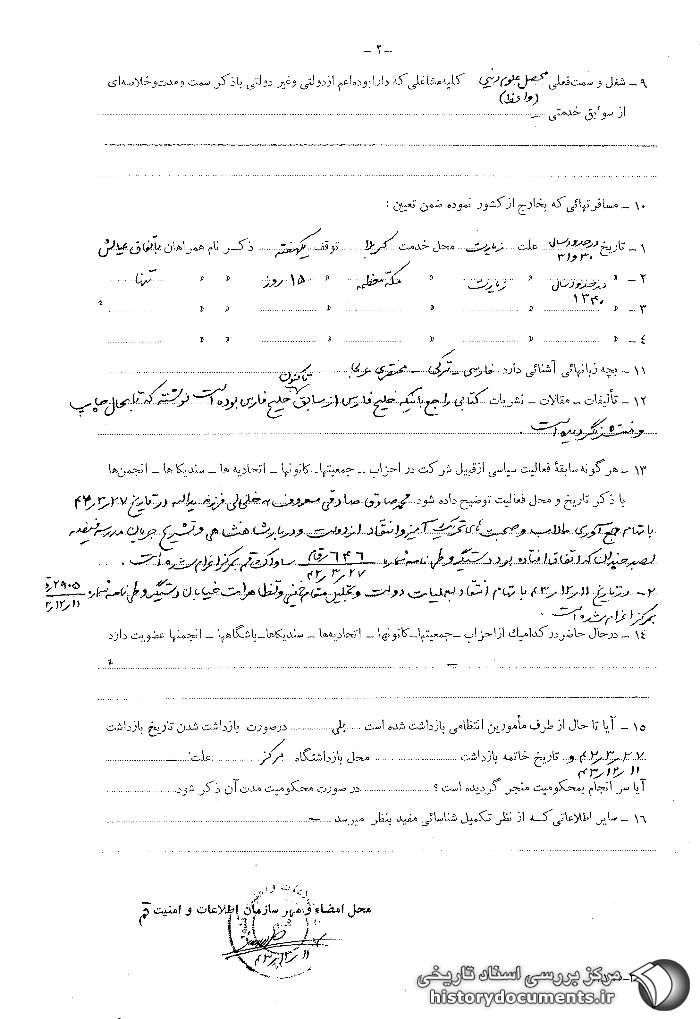 ـ ۲ ـ
۹ ـ شغل و سمت فعلی محصل علوم دینی کلیه مشاغلی که دارا بوده اعم از دولتی و غیر دولتی با ذکر سمت و مدت و خلاصه‌ای
(واعظ)
از سوابق خدمتی
۱۰ ـ مسافرتهائی که بخارج از کشور نموده ضمن تعیین :
۱ ـ تاریخ در حدود سال علت زیارت محل خدمت کربلا توقف یکهفته ذکر نام همراهان باتفاق عیالش
۳۰ و ۳۱
۲ ـ " در حدود سال " زیارت " مکه معظمه " ۱۵ روز " " تنها
۱۳۴۰
۳ ـ " " " " " "
۴ ـ " " " " "
۱۱ ـ بچه زبانهائی آشنائی دارد فارسی ـ ترکی ـ مختصری عربی
۱۲ ـ تألیفات ـ مقالات ـ نشریات کتابی راجع باینکه خلیج فارس از سابق تاکنون خلیج فارس بوده است نوشته که تا بحال چاپ
و منتشر نگردیده است
۱۳ ـ هر گونه سابقهٔ فعالیت سیاسی از قبیل شرکت در احزاب ـ جمعیتها ـ کانونها ـ اتحادیه ها ـ سندیکا ها ـ انجمن‌ها
با ذکر تاریخ و محل فعالیت توضیح داده شود. محمد صادق صادقی معروف به خلخالی فرزند یداله در تاریخ ۲۷/۳/۴۲
باتهام جمع آوری طلاب و صحبت های تحریک آمیز و انتقاد از دولت و دربار شاهنشاهی و تشریح جریان مدرسه فیضیه
که اتفاق افتاده بود دستگیر و طی نامه شماره ۶۴۶/ق م ۲۷/۳/۴۲ ساواک قم بمرکز اعزام شده است .
۲ ـ در تاریخ ۱۱/۱۲/۴۳ باتهام انتقاد بعملیات دولت و تجلیل مقام خمینی و تظاهرات خیابان دستگیر و طی نامه شماره ۲۹۰۵/ق م ۱۱/۱۲/۴۳
بمرکز اعزام شده است .
۱۴ ـ در حال حاضر در کدامیک از احزاب ـ جمعیتها ـ کانونها ـ اتحادیه‌ها ـ سندیکاها ـ باشگاهها ـ انجمنها عضویت دارد
ـ
۱۵ ـ آیا تا حال از طرف مأمورین انتظامی بازداشت شده است بلی در صورت بازداشت شدن تاریخ بازداشت
۲۷/۳/۴۲ و تاریخ خاتمه بازداشت محل بازداشتگاه مرکز علت
۱۱/۱۲/۴۳
آیا سر انجام بمحکومیت منجر گردیده است ؟ در صورت محکومیت مدت آن ذکر شود
۱۶ ـ سایر اطلاعاتی کـه از نظر تکمیل شناسائی مفید بنظر میرسد ـ
محل امضاء و مهر سازمان اطلاعات و امنیت قم
مرکز بررسی اسناد تاریخی
historydocuments.ir